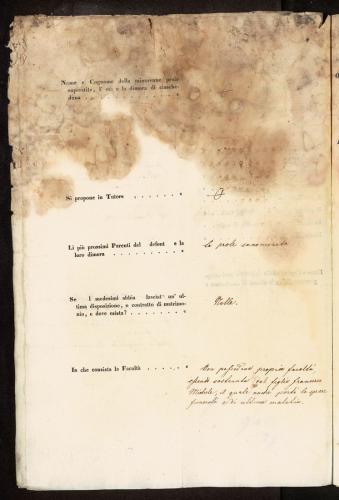 Nome e Cognome della minorenne prole
superstite, l' età e la dimora di ciasche-
duna
Si propone in Tutore
Li più prossimi Parenti del defont e la
loro dimora
la prole sunnomata
Se i medesimi abbia lasciat un' ul-
tima disposizione, o contratto di matrimo-
nio, e dove esista?
Nulla.
In che consista la Facoltà
Non possedeva propria facoltà
essendo sostenuta dal figlio Francesco
Michele, il quale anche portò le spese
funerali e di ultima malattia.